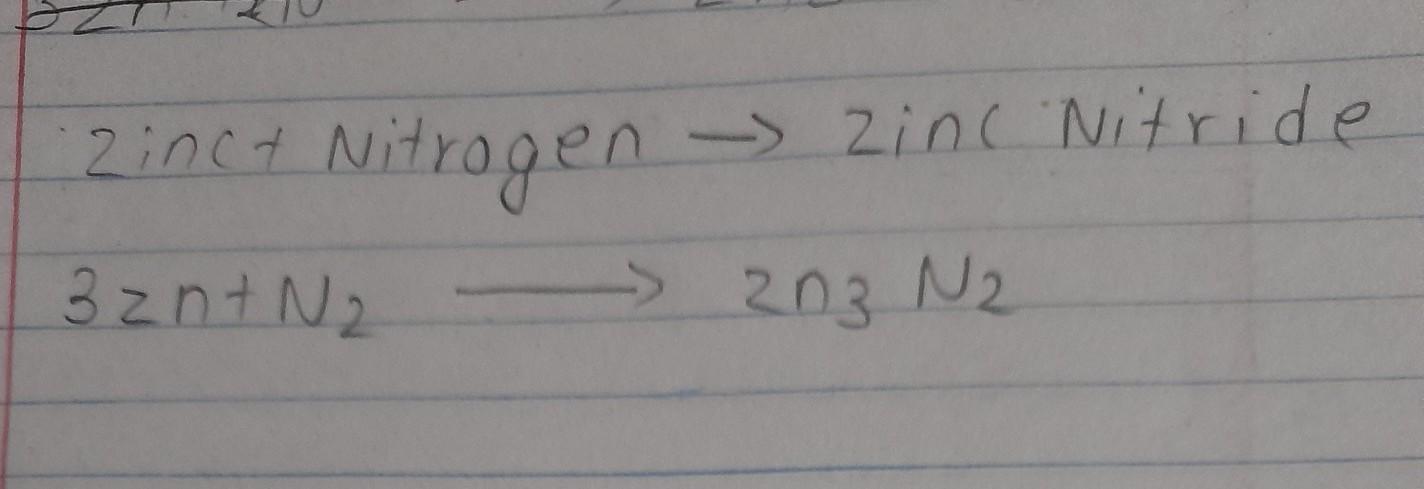 Zinc + Nitrogen → Zinc Nitride
3zn + N2 → Zn3 N2